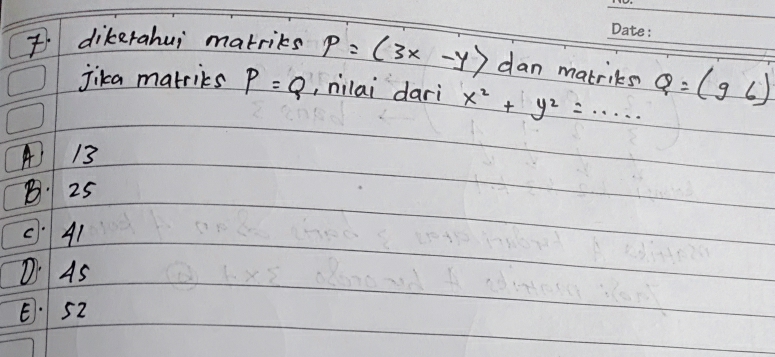 Date:
7. diketahui matriks P = (3x -y) dan matriks Q = (9 6)
Jika matriks P = Q, nilai dari x² + y² = .....
A. 13
B. 25
C. 41
D. 45
E. 52